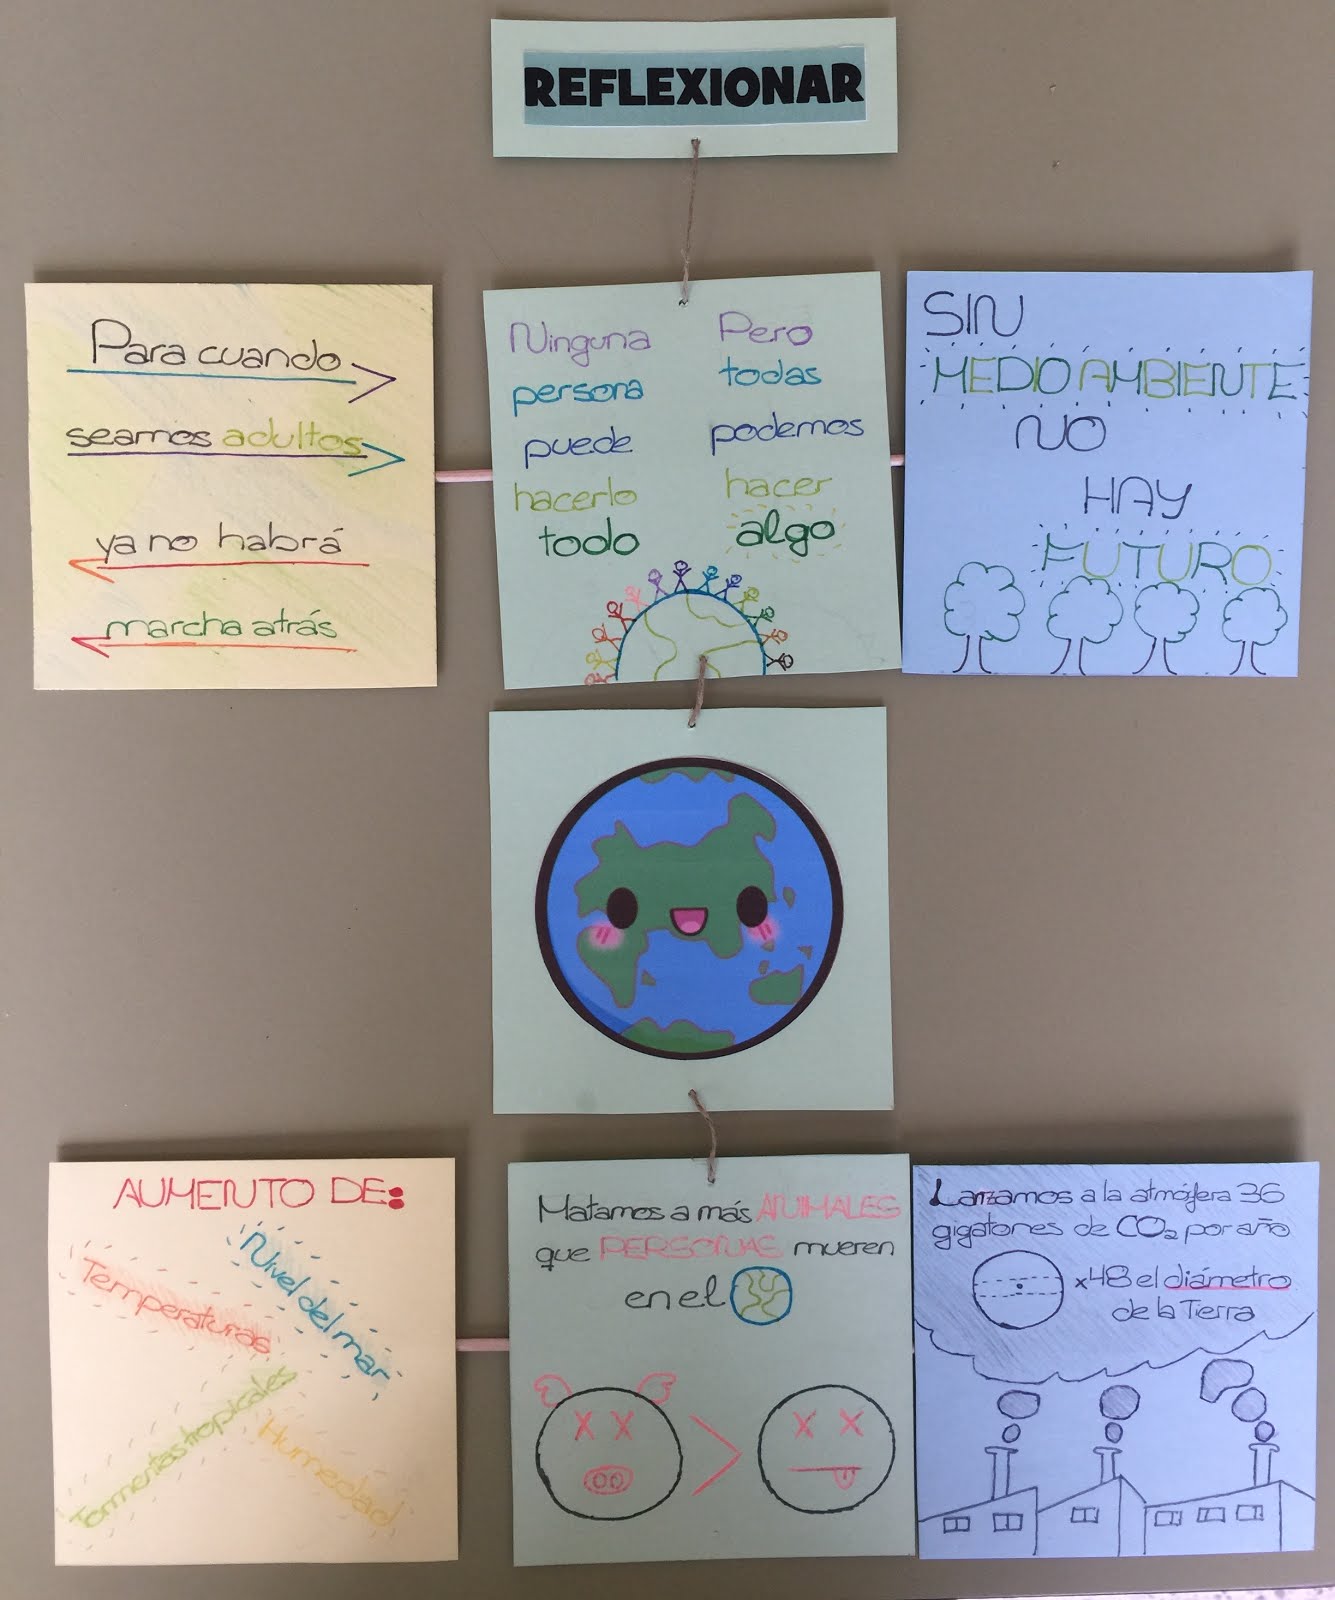 REFLEXIONAR
Para cuando
seamos adultos
ya no habrá
marcha atrás
Ninguna
persona
puede
hacerlo
todo
Pero
todas
podemos
hacer
algo
SIN
MEDIO AMBIENTE
NO
HAY
FUTURO
AUMENTO DE:
Nivel del mar
Temperaturas
Tormentas tropicales
Humedad
Matamos a más ANIMALES
que PERSONAS mueren
en el
X X
>
X X
Lanzamos a la atmósfera 36
gigatones de CO₂ por año
x48 el diámetro
de la Tierra